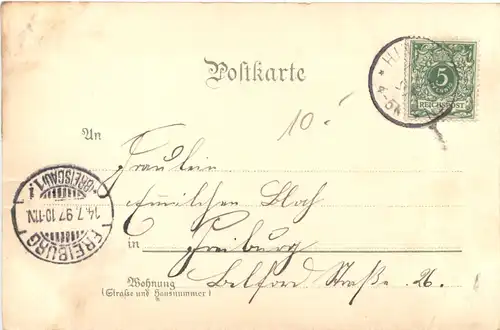 Postkarte
* HI
4-5N
5
PFENNIG
REICHSPOST
10.-
An
Fräulein
Emilchen Bloch
in Freiburg
Wohnung Belfort Straße 26.
(Straße und Hausnummer)
FREIBURG
14.7.97 10-11N
(BREISGAU) 1